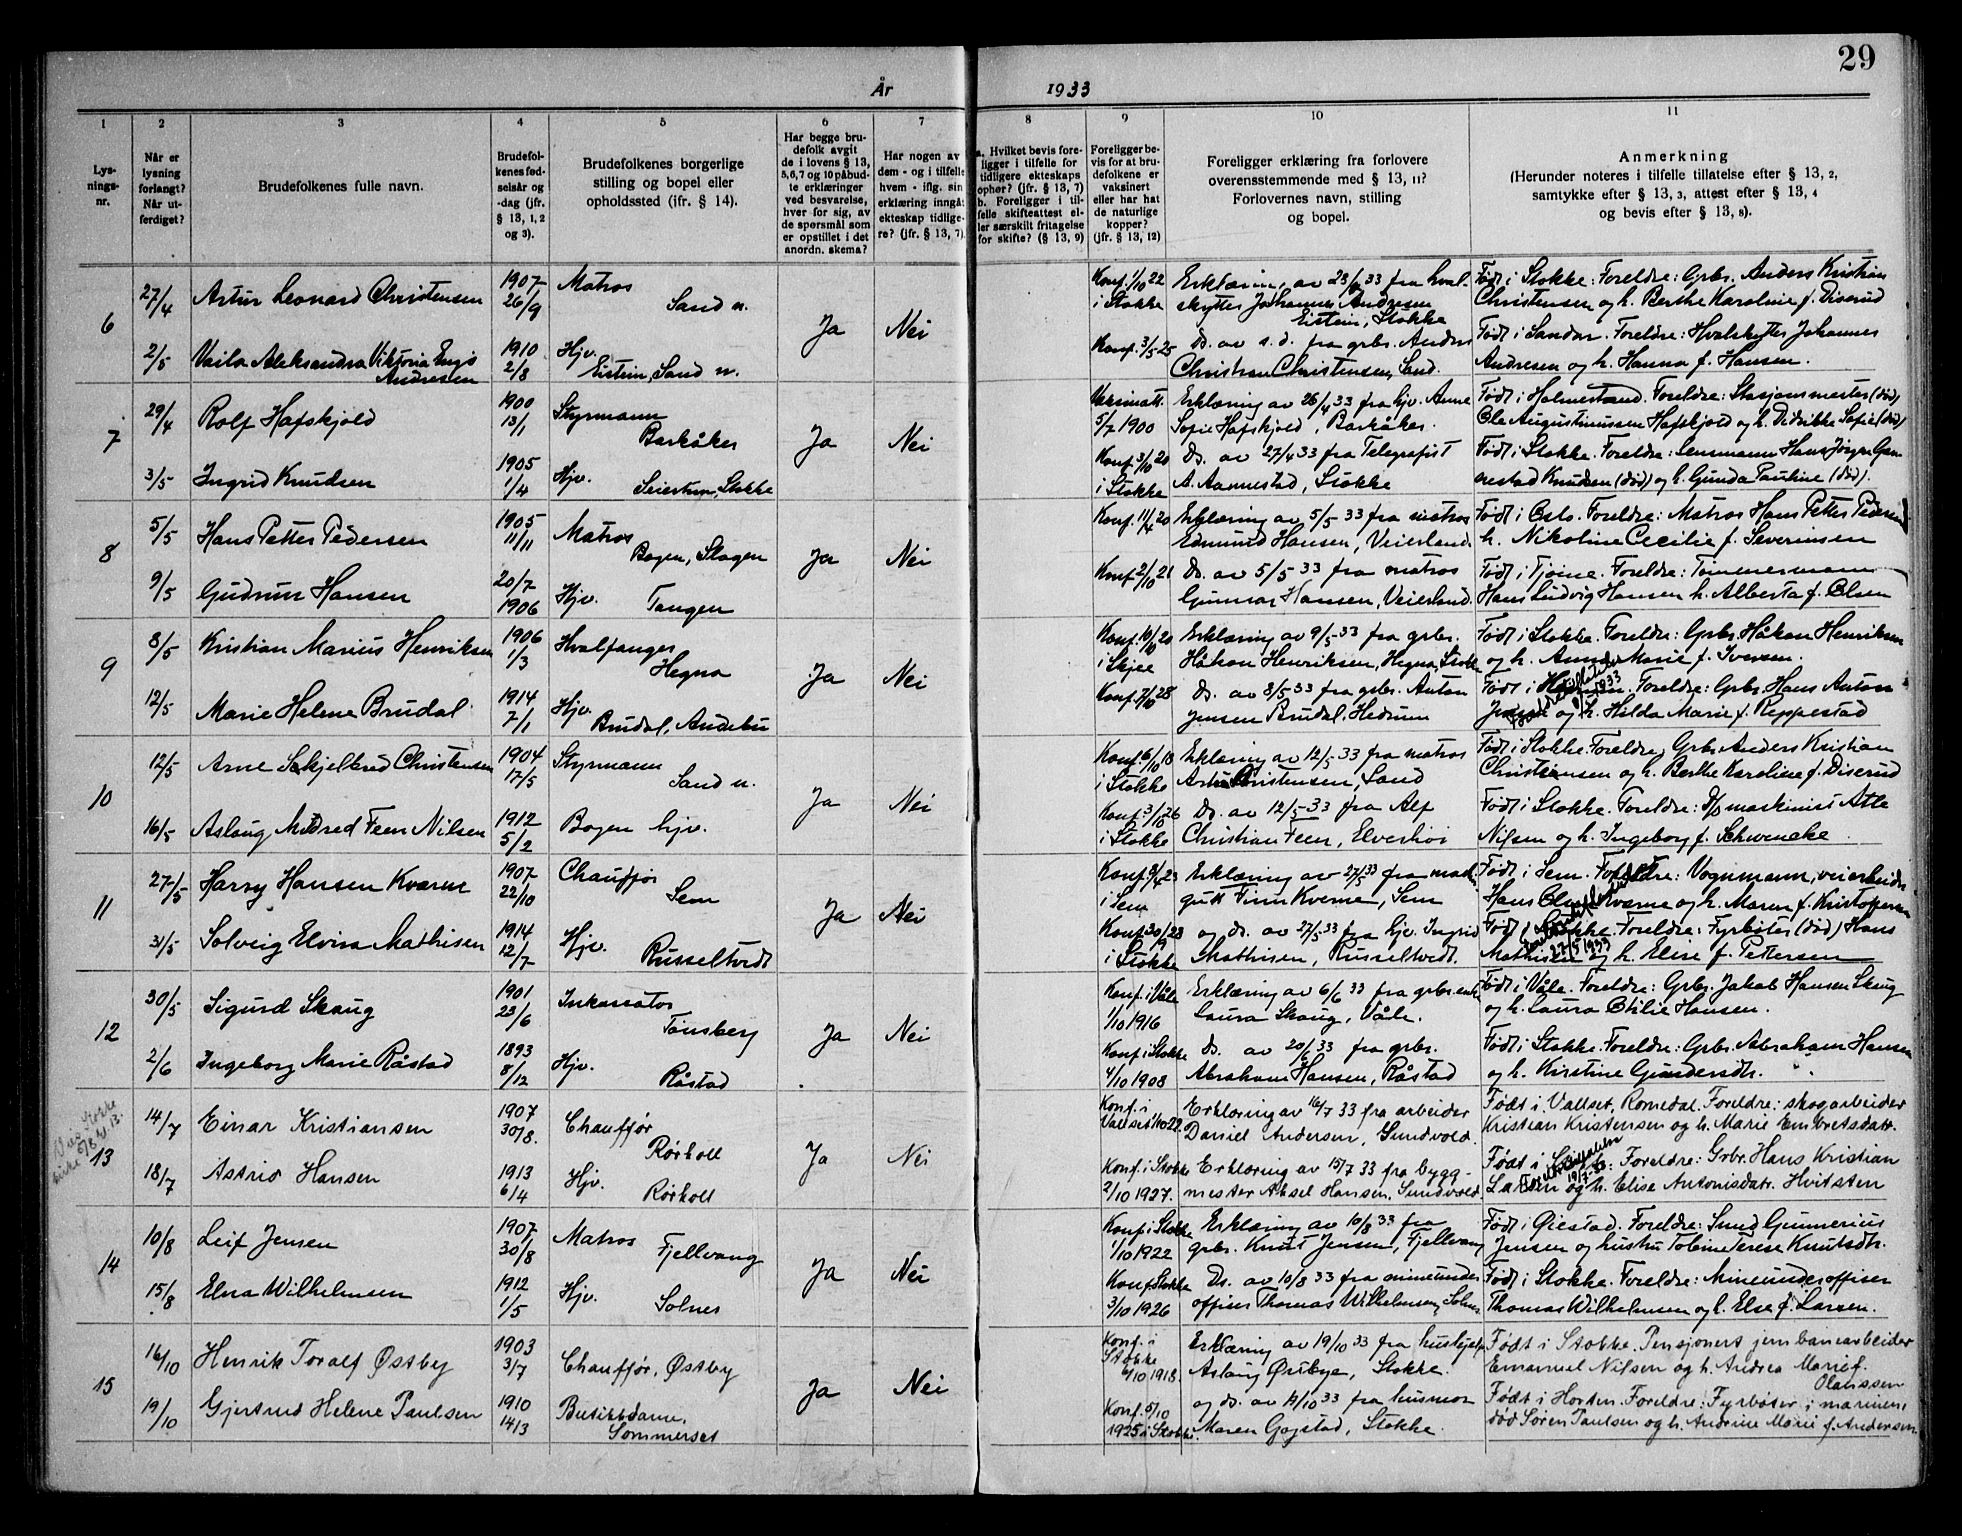 29
År 1933
1 2 3 4 5 6 7 8 9 10 11
Lysnings-nr.
Når er lysning forlangt? Når utferdiget?
Brudefolkenes fulle navn.
Brudefolkenes fødselsår og -dag (jfr. § 13, 1, 2 og 3).
Brudefolkenes borgerlige stilling og bopel eller opholdssted (ifr. § 14).
Har begge brudefolk avgit de i lovens § 13, 5,6,7 og 10 påbudte erklæringer ved besvarelse, hver for sig, av de spørsmål som er opstillet i det anordn. skema?
Har nogen av dem - og i tilfelle hvem - iflg. sin erklæring inngått ekteskap tidligere? (jfr. § 13, 7).
a. Hvilket bevis foreligger i tilfelle for tidligere ekteskaps ophør? (jfr. § 13, 7) b. Foreligger i tilfelle skifteattest eller særskilt fritagelse for skifte? (§ 13, 9)
Foreligger bevis for at brudefolkene er vaksinert eller har hat de naturlige kopper? (jfr. § 13, 12)
Foreligger erklæring fra forlovere overensstemmende med § 13, 11? Forlovernes navn, stilling og bopel.
Anmerkning
(Herunder noteres i tilfelle tillatelse efter § 13, 2, samtykke efter § 13, 3, attest efter § 13, 4 og bevis efter § 13, 8).
6
27/4 Artur Leonard Christensen 1907 26/9 Matros Sand n. Ja Nei Konf. 1/10 22 i Stokke Erklæring av 23/4 33 fra hval-
skytter Johannes Andresen Eistein, Stokke
Født i Stokke. Foreldre: Grbr. Anders Kristian
Christensen og h. Berthe Karoline f. Diserud
2/5 Vaila Aleksandra Viktoria Engø Andresen 1910 2/8 Hjv. Eistein, Sand n. Konf. 3/5 25 Ds. av s.d. fra grbr. Anders
Christian Christensen, Sand.
Født i Sandar. Foreldre: Hvalskytter Johannes
Andresen og h. Hanna f. Hansen.
7
29/4 Rolf Hafskjold 1900 13/1 Styrmann Barkåker Ja Nei Vaksinatt. 5/7 1900 Erklæring av 26/4 33 fra hjv. Anne
Sofie Hafskjold, Barkåker.
Født i Holmestrand. Foreldre: Stasjonsmester (død)
Ole Augustinussen Hafskjold og h. Didrikke Sofie (død)
3/5 Ingrid Knudsen 1905 1/4 Hjv. Seierstem, Stokke Konf. 3/10 20 i Stokke Ds. av 27/4 33 fra Telegrafist
A. Aamestad, Stokke
Født i Stokke. Foreldre: Lensmann Hans Jørgen Gen-
nestad Knudsen (død) og h. Gunda Pauline (død).
8
5/5 Hans Petter Pedersen 1905 11/11 Matros Bogen, Skagen Ja Nei Konf. 11/4 20 Erklæring av 5/5 33 fra matros
Edmund Hansen, Veierland.
Født i Oslo. Foreldre: Matros Hans Petter Pedersen
h. Nikoline Cecilie f. Severinsen
9/5 Gudrun Hansen 20/7 1906 Hjv. Tangen Konf. 2/10 21 Ds. av 5/5 33 fra matros
Gunnar Hansen, Veierland.
Født i Tjøme. Foreldre: Tømmermann
Hans Ludvig Hansen h. Alberta f. Olsen
9
8/5 Kristian Marius Henriksen 1906 1/3 Hvalfanger Hegna Ja Nei Konf. 10/10 20 i Skjee Erklæring av 9/5-33 fra grbr.
Håkon Henriksen, Hegna, Stokke
Født i Stokke. Foreldre: Grbr. Håkon Henriksen
og h. Anna Marie f. Iversen.
12/5 Marie Helene Brudal 1914 7/1 Hjv. Brudal, Andebu Konf. 7/10 28 Ds. av 8/5 33 fra grbr. Anton
Jensen Brudal, Hedrum
Født i Hedrum. Foreldre: Grbr. Hans Anton
Jensen og h. Hilda Marie f. Reppestad
10
12/5 Arne Skjelbred Christensen 1904 17/5 Styrmann Sand n. Ja Nei Konf. 6/10 18 i Stokke Erklæring av 12/5 33 fra matros
Artur Christensen, Sand
Født i Stokke. Foreldre, Grbr. Anders Kristian
Christensen og h. Berthe Karoline f. Diserud
16/5 Aslaug Mildred Feen Nilsen 1912 5/2 Bogen hjv. Konf. 3/10 26 i Stokke Ds. av 12/5-33 fra Alf
Christian Feen, Elverhøi
Født i Stokke. Foreldre: D/p maskinist Atle
Nilsen og h. Ingeborg f. Schwencke
11
27/5 Harry Hansen Kværne 1907 22/10 Chauffør Sem Ja Nei Konf. 9/4 23 i Sem Erklæring av 27/5 33 fra mask.
gutt Finn Kverne, Sem
Født i Sem. Foreldre: Vognmann, veiarbeider
Hans Olaf Kværne og h. Maren f. Kristoffersen
31/5 Solveig Elvira Mathisen 1914 12/7 Hjv. Russeltvedt Konf. 30/9 23 i Stokke og ds. av 27/5 33 fra hjv. Ingrid
Mathisen, Russeltvedt.
Født i Stokke. Foreldre: Fyrbøter (død) Hans
Mathisen og h. Elise f. Pettersen
27/5 1933
12
30/5 Sigurd Skaug 1901 23/6 Inkassator Tønsberg Ja Nei Konf. i Våle 1/10 1916 Erklæring av 6/6 33 fra grbr. enke
Laura Skaug, Våle.
Født i Våle. Foreldre: Grbr. Jakob Hansen Skaug
og h. Laura Otilie Hansen.
2/6 Ingeborg Marie Råstad 1893 8/12 Hjv. Råstad Konf. i Stokke 4/10 1908 Ds. av 20/6 33 fra grbr.
Abraham Hansen, Råstad
Født i Stokke. Foreldre: Grbr. Abraham Hansen
og h. Kirstine Gundersdtr.
13
14/7 Einar Kristiansen 1907 30/8. Chauffør Rørkoll Ja Nei Konf. i Vallset 1/10 22 Erklæring av 16/7 33 fra arbeider
Daniel Andersen, Sundvold.
Født i Vallset, Romedal. Foreldre: skogarbeider
Kristian Kristensen og h. Marie Embretsdatr.
18/7 Astrid Hansen 1913 6/4 Hjv. Rørkoll Konf. i Stokke 2/10 1927. Erklæring av 15/7 33 fra bygg-
mester Aksel Hansen, Sundvold.
Født i Stokke. Foreldre: Grbr. Hans Kristian
Larsen og h. Elise Antonisdatr. Hvitsten
14
10/8 Leif Jensen 1907 30/8 Matros Fjellvang Ja Nei Konf. i Stokke 1/10 1922 Erklæring av 10/8 33 fra
grbr. Knut Jensen, Fjellvang
Født i Øiestad. Foreldre: Smed Gunnerius
Jensen og hustru Tobine Terese Knutsdtr.
15/8 Elna Wilhelmsen 1912 1/5 Hjv. Solnes Konf. Stokke 3/10 1926 Ds. av 10/8 33 fra mineunder-
offiser Thomas Wilhelmsen, Solnes
Født i Stokke. Foreldre: Mineunderoffiser
Thomas Wilhelmsen og h. Else f. Larsen.
15
16/10 Henrik Toralf Østby 1903 3/7 Chauffør, Østby Ja Nei Konf. i Stokke 6/10 1918. Erklæring av 19/10 33 fra hushjelp
Aslaug Østbye, Stokke.
Født i Stokke. Pensjonert jernbanearbeider
Emanuel Nilsen og h. Andrea Marie f. Olaussen
19/10 Gjertrud Helene Paulsen 1910 14/3 Butikkdame, Sommerset Konf. 5/10 1925 i Stokke. og ds. av 19/10 33 fra husmor
Maren Gogstad, Stokke.
Født i Horten. Foreldre: Fyrbøter i marinen,
død Søren Paulsen og h. Andrine Marie f. Andersen